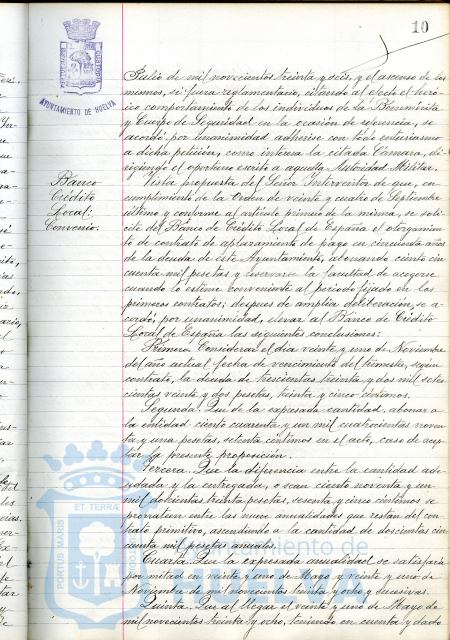 10
AYUNTAMIENTO DE HUELVA
Julio de mil novecientos treinta y seis, y el ascenso de los
mismos, si fuera reglamentario, citando al efecto el heró-
ico comportamiento de los individuos de la Benemérita
y Cuerpo de Seguridad en la ocasión de referencia, se
acordó, por unanimidad adherirse con todo entusiasmo
a dicha petición, como interesa la citada Cámara, di-
rigiendo el oportuno escrito a aquella Autoridad Militar.
Banco
Crédito
Local:
Convenio.
Vista propuesta del Señor Interventor de que, en
cumplimiento de la Orden de veinte y cuatro de Septiembre
último y conforme al artículo primero de la misma, se soli-
cite del Banco de Crédito Local de España el otorgamien-
to de contrato de aplazamiento de pago en cincuenta años
de la deuda de este Ayuntamiento, abonando ciento cin
cuenta mil pesetas y reservarse la facultad de acogerse
cuando lo estime conveniente al periodo fijado en los
primeros contratos; despues de amplia deliberación, se a-
cordó, por unanimidad, elevar al Banco de Crédito
Local de España las siguientes conclusiones:
Primera. Considerar el día veinte y uno de Noviembre
del año actual fecha de vencimiento del trimestre, según
contrato, la deuda de trescientas treinta y dos mil sete-
cientas veinte y dos pesetas, treinta y cinco céntimos.
Segunda. Que de la expresada cantidad, abonar a
la entidad ciento cuarenta y un mil cuatrocientas noven-
ta y una pesetas, setenta céntimos en el acto, caso de acep-
tar la presente proposición.
Tercera. Que la diferencia entre la cantidad ade-
udada y la entregada, o sean ciento noventa y un
mil doscientas treinta pesetas, sesenta y cinco céntimos se
prorrateen entre las nueve anualidades que restan del con-
trato primitivo, ascendiendo a la cantidad de doscientas cin
cuenta mil pesetas anuales.
Cuarta. Que la expresada anualidad se satisfaría
por mitad en veinte y uno de Mayo y veinte y uno de
Noviembre de mil novecientos treinta y ocho y sucesivas.
Quinta. Que al llegar el veinte y uno de Mayo de
mil novecientos treinta y ocho, teniendo en cuenta y dado
PORTUS MARIS
ET TERRÆ
Ayuntamiento de
HUELVA